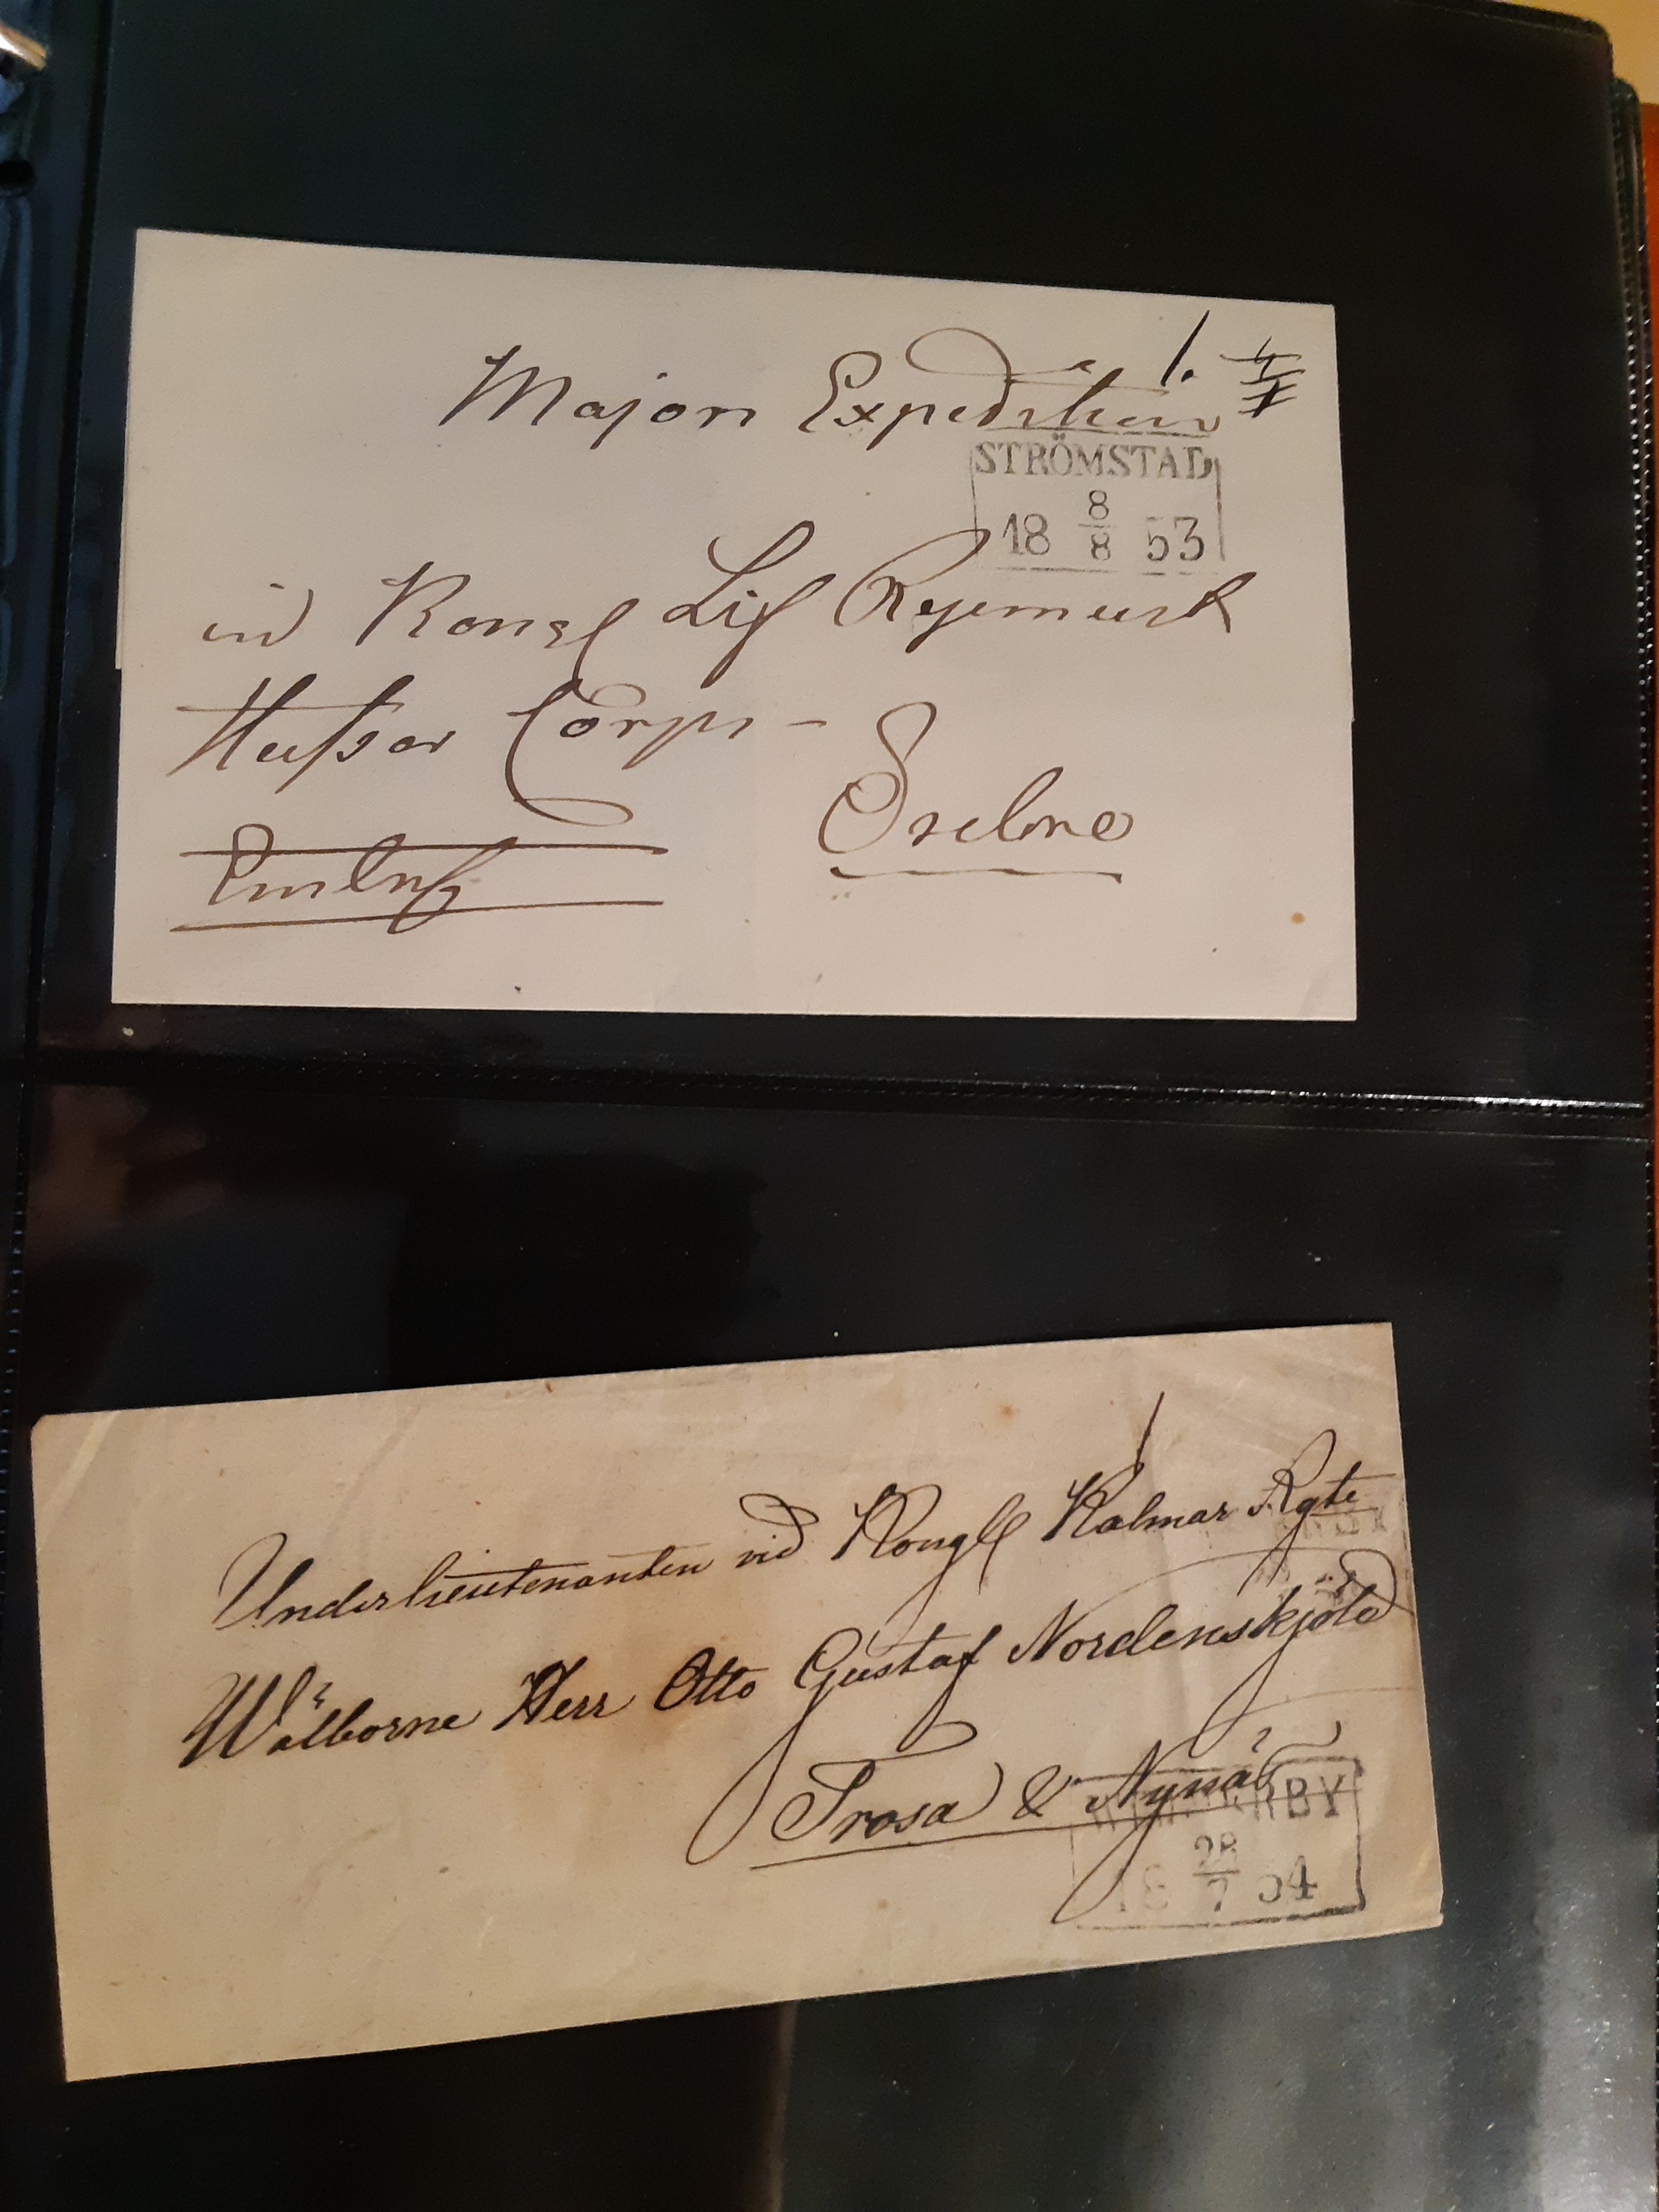 Majors Expeditien
1.
STRÖMSTAD
18 8/8 53
vid Kongl Lif Regements
Hussar Corps -
Örebro
Underlieutenanten vid Kongl Kalmar Rgte
Wälborne Herr Otto Gustaf Nordenskjöld
Trosa & Nynäs
WIMMERBY
18 28/7 54